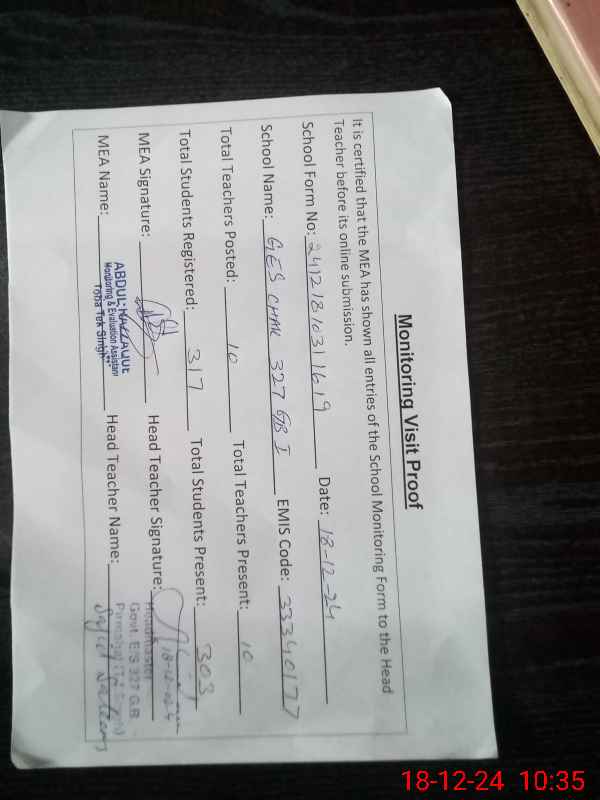 Monitoring Visit Proof
It is certified that the MEA has shown all entries of the School Monitoring Form to the Head
Teacher before its online submission.
School Form No: 24121810311619 Date: 18-12-24
School Name: GES CHAK 327 GB I EMIS Code: 33340177
Total Teachers Posted: 10 Total Teachers Present: 10
Total Students Registered: 317 Total Students Present: 303
MEA Signature: Head Teacher Signature:
18-12-024
MEA Name: ABDUL RAZZAQUE Head Teacher Name:
Monitoring & Evaluation Assistant
Toba Tek Singh
Headmaster
Govt. E/S 327 G.B.
18-12-24 10:35